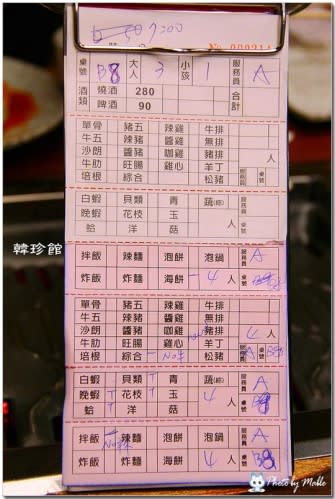 6:30 7:00
No 000214
桌號 B8 大人 3 小孩 1 服務員 A
酒類 燒酒 280 合計
啤酒 90
單骨 豬五 辣雞 牛排
牛五 辣豬 醬雞 無排
沙朗 醬豬 咖雞 豬排 人
牛肋 旺腸 雞心 羊丁 服務員 桌號
培根 綜合 松豬
白蝦 貝類 青 蔬(綜) 服務員
晚蝦 花枝 玉 人 桌號
蛤 洋 菇
韓珍館
拌飯 辣麵 泡餅 泡鍋 服務員 A
炸飯 炸麵 海餅 4 人 桌號 B8
單骨 豬五 辣雞 牛排
牛五 辣豬 醬雞 無排
沙朗 醬豬 咖雞 豬排 4 人
牛肋 旺腸 雞心 羊丁 服務員 桌號
培根 綜合 松豬 A B8
白蝦 貝類 T 青 蔬(綜) 服務員 A
晚蝦 T 花枝 T 玉 4 人 桌號 B8
蛤 洋 菇
拌飯 辣麵 泡餅 泡鍋 服務員 A
炸飯 炸麵 海餅 4 人 桌號 B8
Photo by Mable